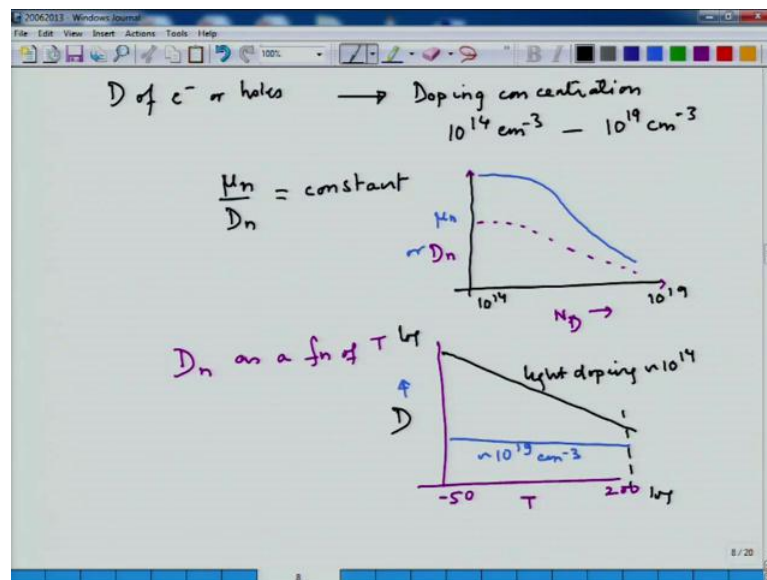 20062013 - Windows Journal
File Edit View Insert Actions Tools Help
100%
B I
D of e⁻ or holes ⟶ Doping concentration
10¹⁴ cm⁻³ — 10¹⁹ cm⁻³
μn / Dn = constant
μn
or Dn
10¹⁴
10¹⁹
N_D →
Dn as a fn of T
log
light doping ~ 10¹⁴
D
~ 10¹⁹ cm⁻³
-50
T
200
log
8 / 20